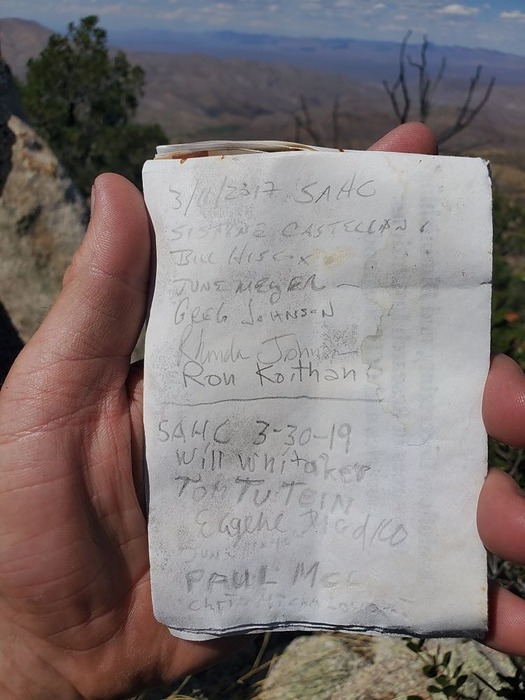 3/11/2017 SAHC
SISTINE CASTELLAN
BILL HISCOX
JUNE MEYER
GREG JOHNSON
Johnson
Ron Koithan
SAHC 3-30-19
Will Whitaker
TOM TUTEIN
Eugene
June
PAUL
Chris